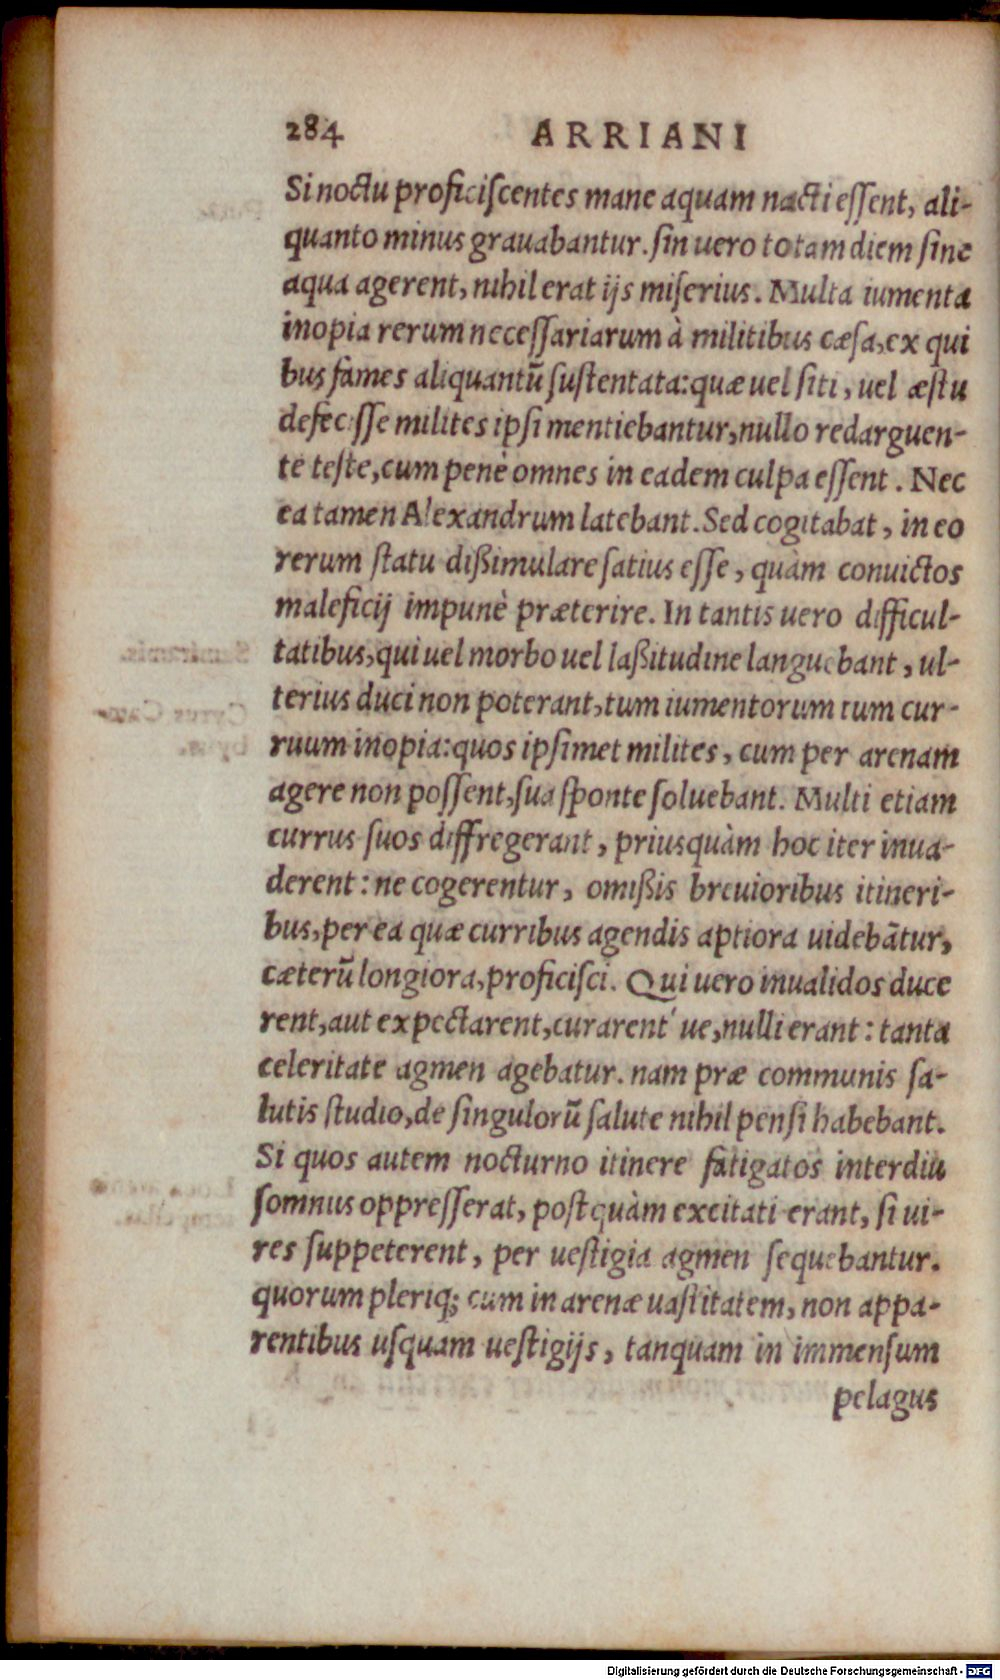 284 ARRIANI
Si noctu proficiſcentes mane aquam nacti eſſent, ali-
quanto minus grauabantur. ſin uero totam diem ſine
aqua agerent, nihil erat ijs miſerius. Multa iumenta
inopia rerum neceſſariarum à militibus cæſa, ex qui
bus fames aliquantũ ſuſtentata: quæ uel ſiti, uel æſtu
defeciſſe milites ipſi mentiebantur, nullo redarguen-
te teſte, cum penè omnes in eadem culpa eſſent. Nec
ea tamen Alexandrum latebant. Sed cogitabat, in eo
rerum ſtatu dißimulare ſatius eſſe, quàm conuictos
maleficij impunè præterire. In tantis uero difficul-
tatibus, qui uel morbo uel laßitudine languebant, ul-
terius duci non poterant, tum iumentorum tum cur-
ruum inopia: quos ipſimet milites, cum per arenam
agere non poſſent, ſua ſponte ſoluebant. Multi etiam
currus ſuos diffregerant, priusquàm hoc iter inua-
derent: ne cogerentur, omißis breuioribus itineri-
bus, per ea quæ curribus agendis aptiora uidebãtur,
cæterũ longiora, proficiſci. Qui uero inualidos duce
rent, aut expectarent, curarent' ue, nulli erant: tanta
celeritate agmen agebatur. nam præ communis ſa-
lutis ſtudio, de ſingulorũ ſalute nihil penſi habebant.
Si quos autem nocturno itinere fatigatos interdiu
ſomnus oppreſſerat, poſtquàm excitati erant, ſi ui-
res ſuppeterent, per ueſtigia agmen ſequebantur.
quorum pleriq; cum in arenæ uaſtitatem, non appa-
rentibus uſquam ueſtigijs, tanquam in immenſum
pelagus
Digitalisierung gefördert durch die Deutsche Forschungsgemeinschaft - DFG